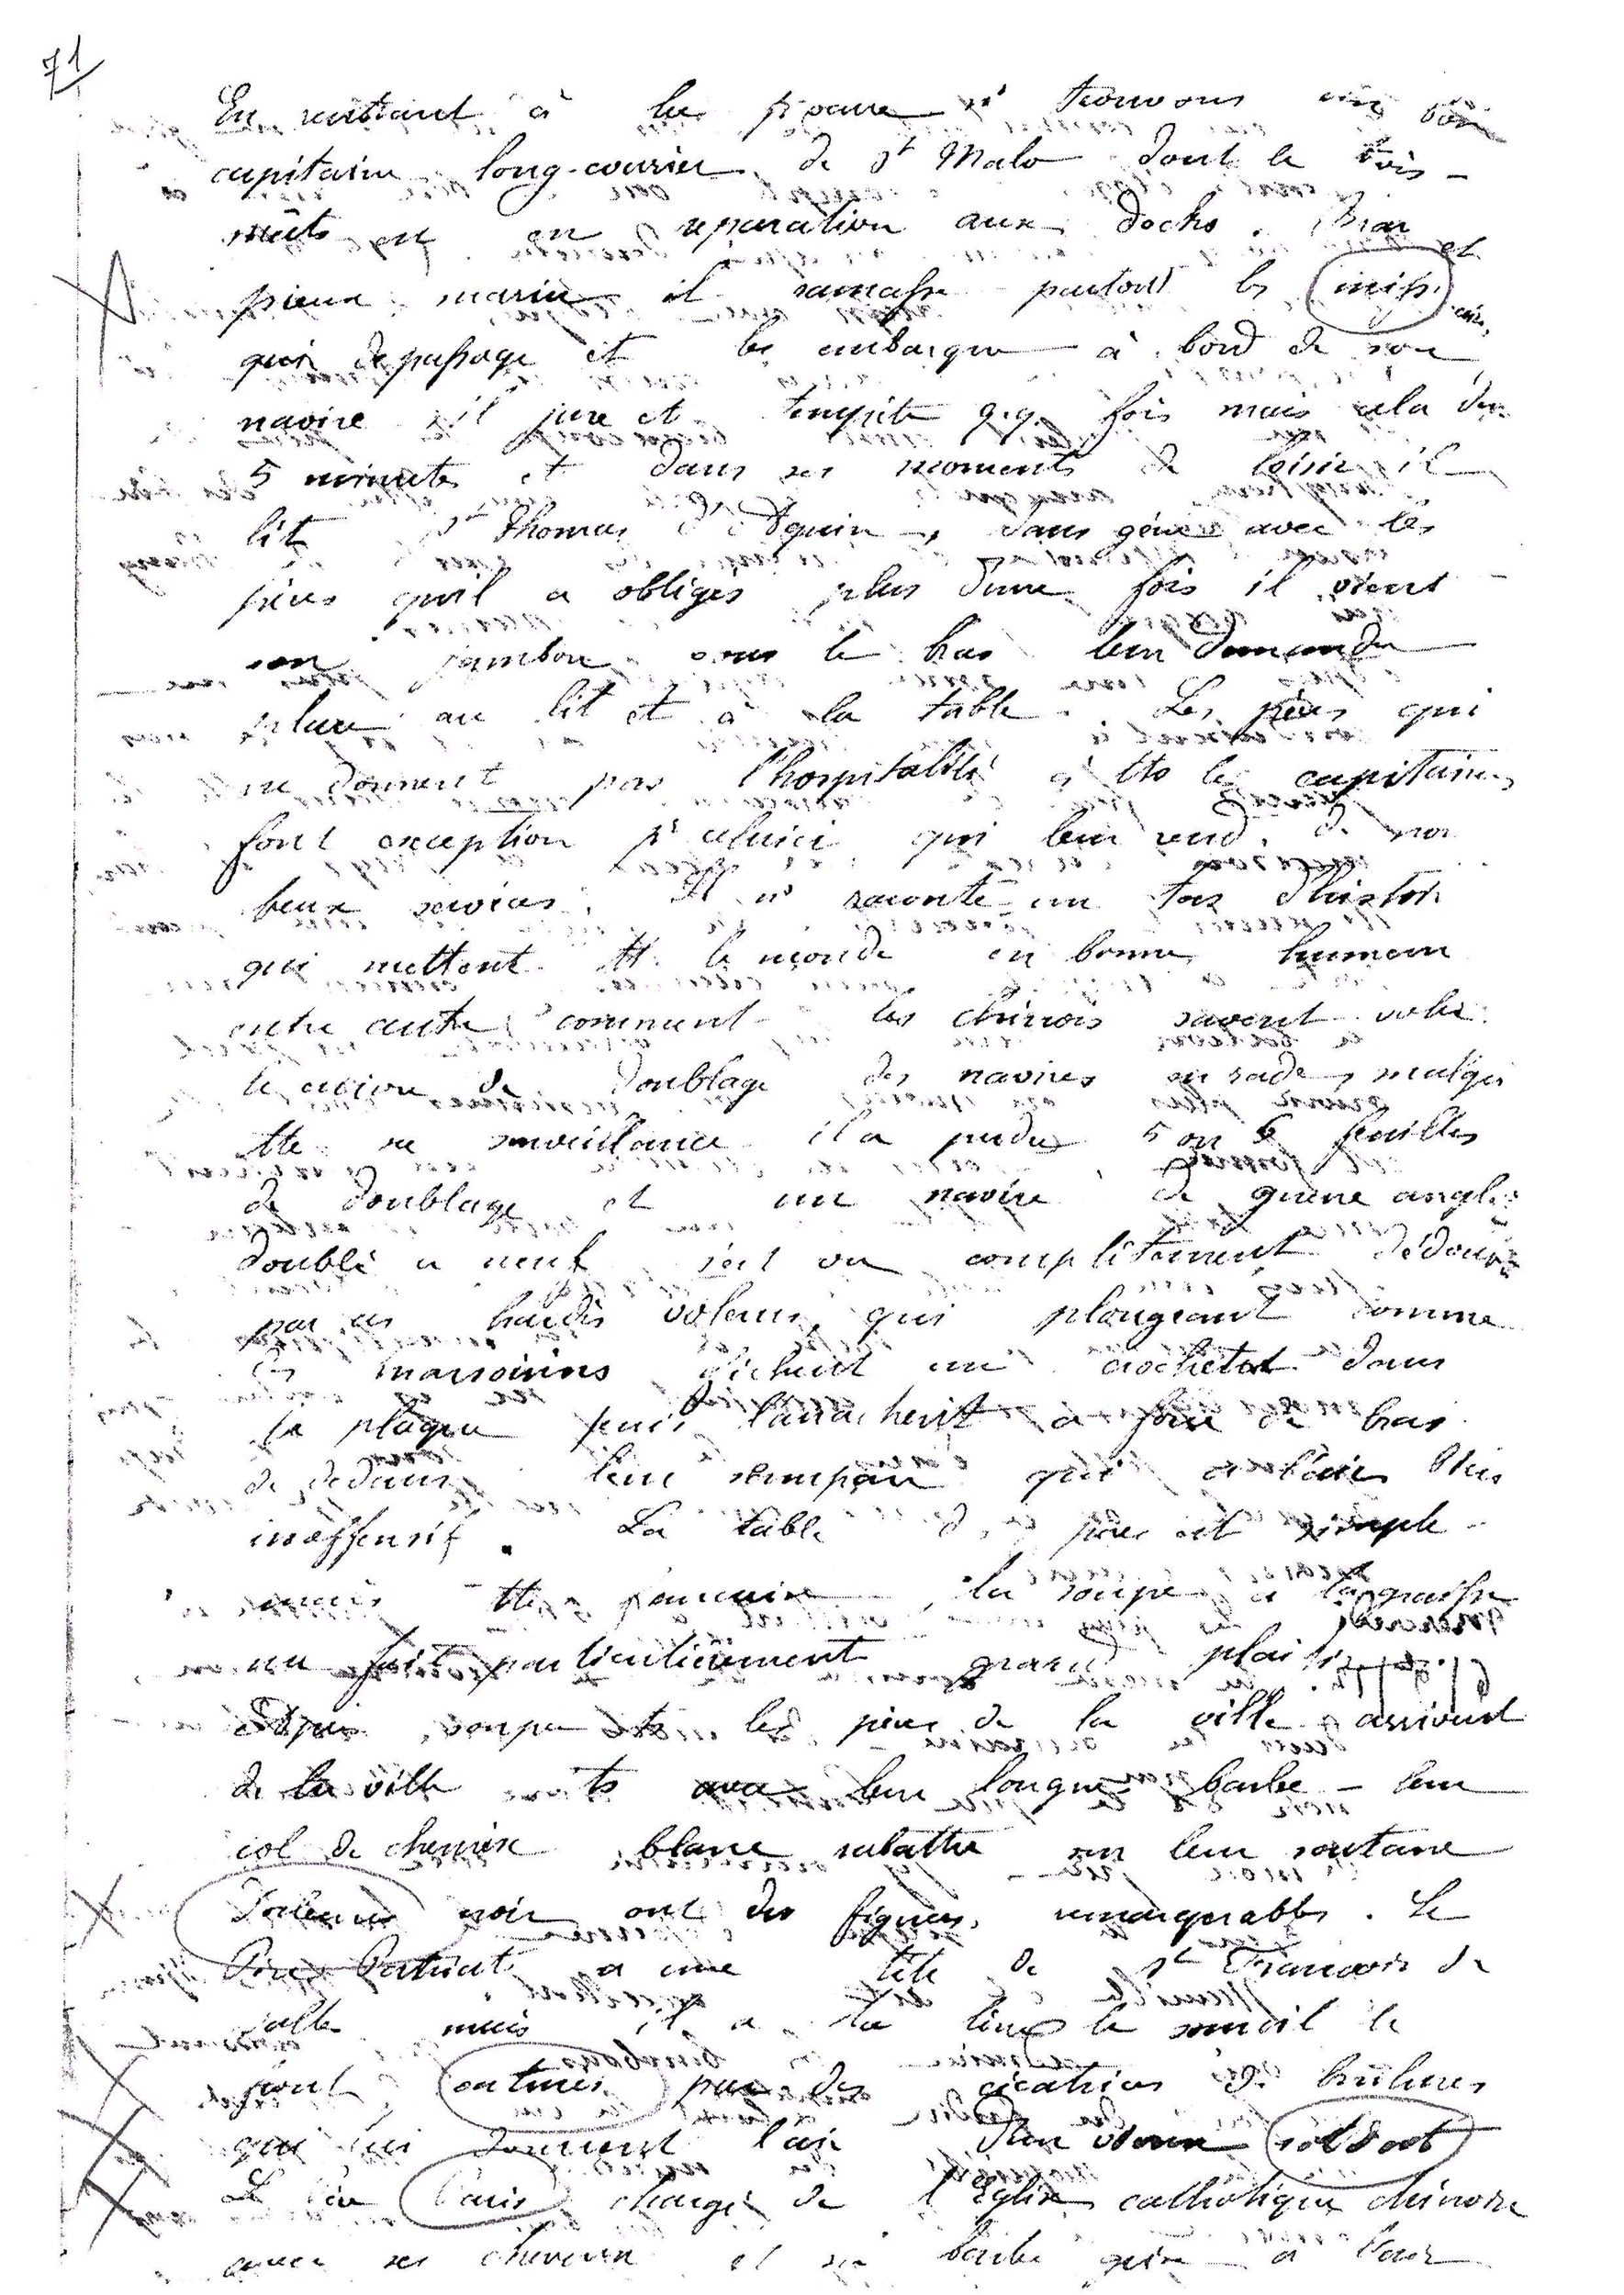 71
En rentrant à la procure ns trouvons un bon
capitaine long-courrier de St Malo dont le trois-
mâts est en réparation aux docks. Brave et
pieux marin il ramasse partout les miss-
de passage et les embarque à bord de son
navire s'il jure et tempête q.q. fois mais cela dure
5 minutes et dans ses moments de loisir il
lit St Thomas d'Aquin, sans gêne avec les
pères qu'il a obligés plus d'une fois il vient
son jambon sous le bras leur demander
place au lit et à la table. Les pères qui
ne donnent pas l'hospitalité à tts les capitaines
font exception pr celui ci qui leur rend de nom
breux services. Il ns raconte un tas d'histoires
qui mettent tt le monde en bonne humeur
entre autre comment les chinois savent voler
le cuivre de doublage des navires en rade, malgré
tte sa surveillance il a perdu 5 ou 6 feuilles
de doublage et un navire de guerre anglais
doublé à neuf s'est vu complètement dédoublé
par ces hardis voleurs, qui plongeant comme
des marsouins fichent un crochet dans
la plaque puis l'arrachent à force de bras
de dedans leur sampan qui a l'air très
inoffensif. La table des pères est simple
mais la soupe à la graisse
me fait particulièrement grand plaisir
Après souper ts les pères de la ville arrivent
de la ville ts avec leur longue barbe - leur
col de chemise blanc rabattu sur leur soutane
noire ont des figures remarquables. Le
Père Patriat a une tête de St François de
Salles mais il a la le sourcil le
front par des cicatrices de brûlures
qui lui donnent l'air d'un vieux soldat
Le Père chargé de l'Eglise catholique chinoise
avec ses cheveux et sa barbe grise a l'air